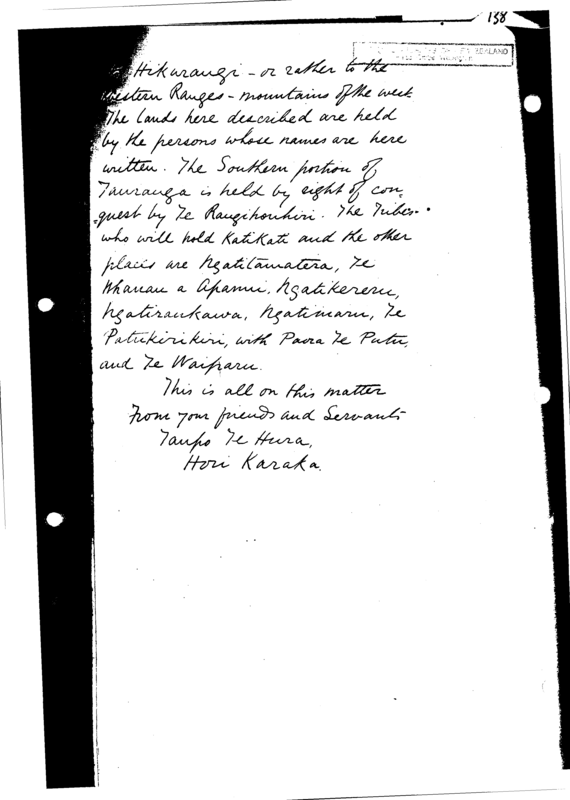 138
Hikurangi - or rather to the
Western Ranges - mountains of the west
The lands here described are held
by the persons whose names are here
written. The Southern portion of
Tauranga is held by right of con„
„quest by Te Rangihouhiri. The Tribes
who will hold Katikati and the other
places are Ngatitamatera, Te
Whanau a Apanui, Ngatikereru,
Ngatiraukawa, Ngatimaru, Te
Patukirikiri, with Paora Te Putu,
and Te Waiparu.
This is all on this matter
From your friends and Servants
Taupo Te Hura,
Hori Karaka.